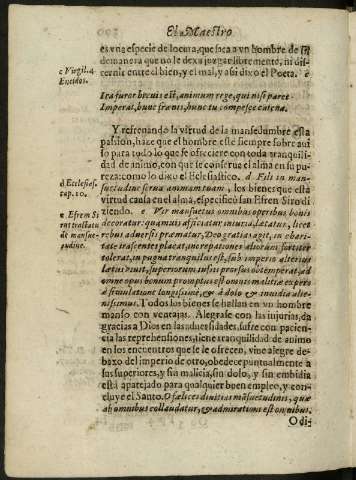 El Maestro
es vna especie de locura, que saca a vn hombre de sí de
manera que no le dexa juzgar libremente, ni dis-
cernir entre el bien, y el mal, y assi dixo el Poeta. c
c Virgil. 4
Eneidos.
Ira furor breuis est, animum rege, qui nisi paret
Imperat, hunc frænis, hunc tu compesce catena.
Y refrenando la virtud de la mansedumbre esta
passion, haze que el hombre esté siempre sobre aui
so para todo lo que se ofreciere con toda tranquili-
dad de animo, con que se conserua el alma en su pu-
reza: como lo dixo el Eclesiastico. d Fili in man-
suetudine serua animam tuam, los bienes que esta
virtud causa en el alma, especificò san Efren Siro di
ziendo. e Vir mansuetus omnibus operibus bonis
decoratur: quamuis afficiatur iniuria, lætatur, licet
rebus aduersis præmatur, Deo gratias agit, in chari-
tate irascentes placat, increpationes aliorum fortiter
tolerat, in pugna tranquillus est, sub imperio alterius
lætus viuit, superiorum iussis prorsus obtemperat, ad
omne opus bonum promptus est omnis malitiæ expers
à simulatione longissimè, & à dolo & inuidia alie-
nissimus. Todos los bienes se hallan en vn hombre
manso con ventajas. Alegrase con las injurias, da
gracias a Dios en las aduersidades, sufre con pacien-
cia las reprehensiones, tiene tranquilidad de animo
en los encuentros que se le ofrecen, viue alegre de-
baxo del imperio de otro, obedece puntualmente a
sus superiores, y sin malicia, sin dolo, y sin embidia
está aparejado para qualquier buen empleo, y con-
cluye el Santo. O fælices diuitias mãsuetudinis, quæ
ab omnibus collaudatur, & admirationi est omnibus.
d Ecclesias.
cap. 10.
e Efrem Si
ro in tractatu
de mansue-
tudine.
O di-